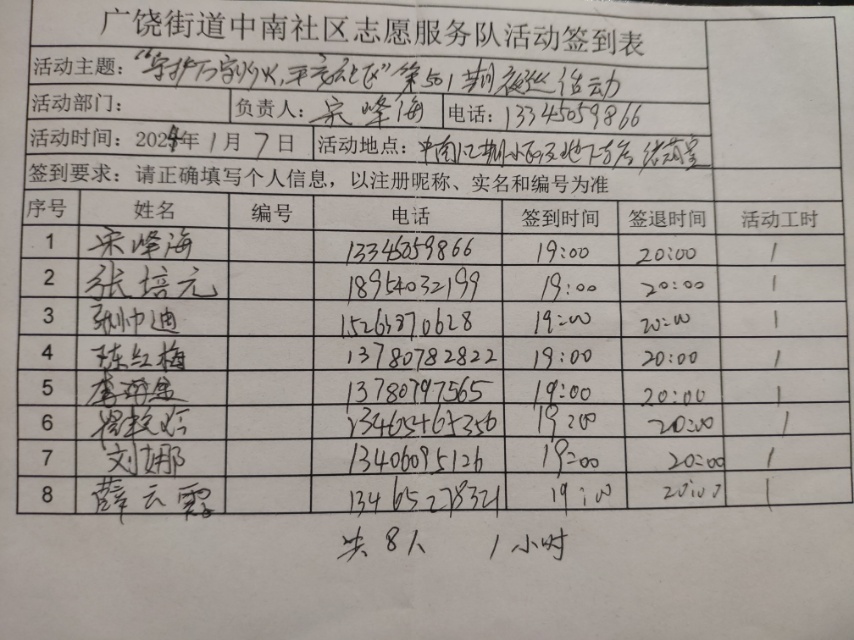 广饶街道中南社区志愿服务队活动签到表
活动主题：“守护万家灯火，平安社区”第501期夜巡活动
活动部门： 负责人：宋峰海 电话：13345059866
活动时间：2024年1月7日 活动地点：中南一二期小区及地下车库
签到要求：请正确填写个人信息，以注册昵称、实名和编号为准
序号 姓名 编号 电话 签到时间 签退时间 活动工时
1 宋峰海 13345059866 19:00 20:00 1
2 张培元 18954032199 19:00 20:00 1
3 张帅迪 15263870628 19:00 20:00 1
4 陈红梅 13780782822 19:00 20:00 1
5 李 13780797565 19:00 20:00 1
6 13465465356 19:00 20:00 1
7 刘娜 13406095126 19:00 20:00 1
8 薛云霞 13465278321 19:00 20:00 1
共8人 1小时